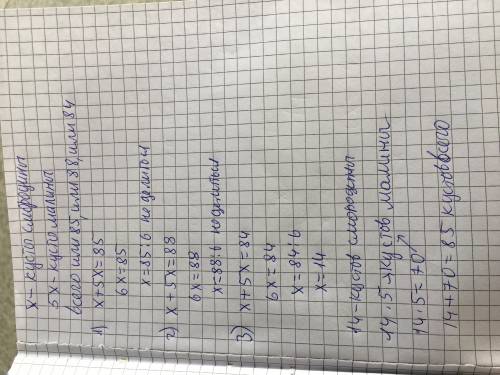 x - куста смородины
5x - куста малины
всего или 85, или 88, или 84
1) x+5x=85
6x=85
x=85:6 не делится
2) x+5x=88
6x=88
x=88:6 не делится
3) x+5x=84
6x=84
x=84:6
x=14
14 - кустов смородины
14·5 - кустов малины
14·5=70
14+70=85 кустов всего